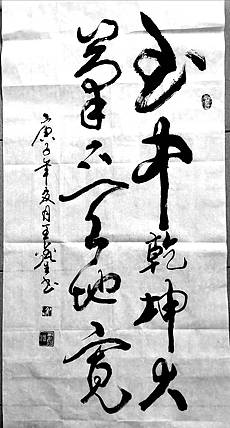 书中乾坤大
笔下天地宽
庚子年亥月王書